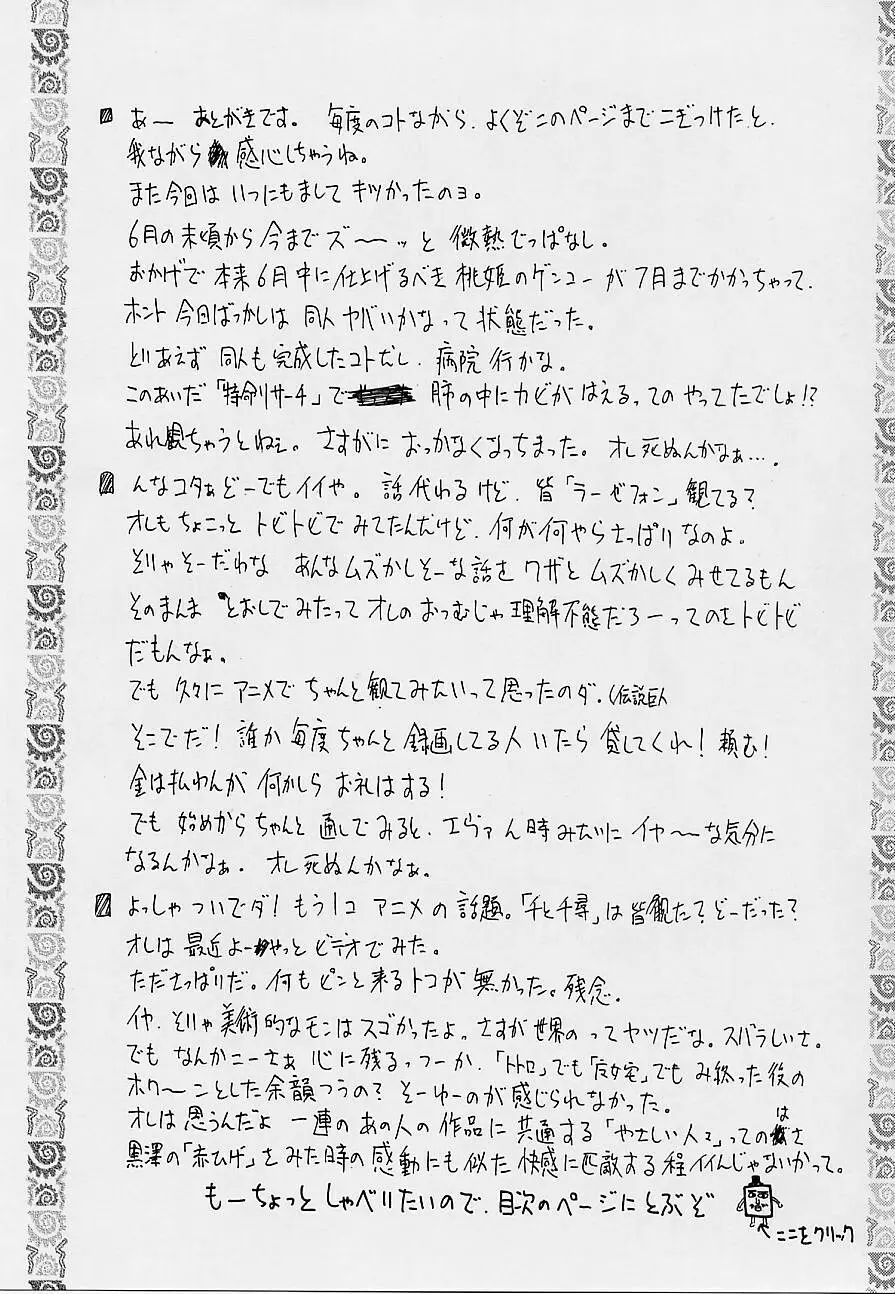 あー あとがきです。 毎度のコトながら、よくぞこのページまでこぎつけたと、
我ながら感心しちゃうね。
また今回は いつにもまして キツかったのョ。
6月の末頃から 今まで ズ〜〜ッと 微熱でっぱなし。
おかげで 本来6月中に仕上げるべき 桃姫のゲンコーが 7月までかかっちゃって、
ホント 今回ばっかしは 同人 ヤバいかなって 状態だった。
とりあえず 同人も 完成したコトだし、病院 行かな。
このあいだ 「特命リサーチ」で 肺の中にカビがはえるっての やってたでしょ!?
あれ観ちゃうとねぇ。 さすがに おっかなくなっちまった。 オレ死ぬんかなぁ…．
んなコタぁ どーでもイイや。 話代わるけど、皆「ラーゼフォン」観てる?
オレもちょこっと トビトビで みてたんだけど、何が何やらさっぱりなのよ。
そりゃそーだわな あんなムズかしそーな話を ワザと ムズかしく みせてるもん
そのまんま とおしでみたって オレのおつむじゃ 理解不態だろーってのをトビトビ
だもんなぁ。
でも 久々に アニメで ちゃんと観てみたいって思ったのダ．(伝説巨人
そこでだ! 誰か 毎度ちゃんと 録画してる人 いたら 貸してくれ! 頼む!
金は払わんが 何かしら お礼はする!
でも 始めからちゃんと 通しでみると、エヴァん時みたいに イヤ〜〜な気分に
なるんかなぁ． オレ死ぬんかなぁ。
よっしゃ ついでダ! もう1コ アニメの話題。「千と千尋」は皆観た? どーだった?
オレは 最近 よーやっと ビデオでみた。
たださっぱりだ。何も ピンと来るトコが 無かった。残念．
イヤ、そりゃ美術的なモンは スゴかったよ。さすが世界の ってヤツだな。スバラしいさ。
でも なんかこーさぁ 心に残るっつーか、「トトロ」でも「魔女宅」でも み終った後の
ホワ〜ンとした余韻つうの? そーゆーのが感じられなかった。
オレは思うんだよ 一連の あの人の作品に 共通する「やさしい人々」ってのはさ
黒澤の「赤ひげ」をみた時の感動にも似た 快感に匹敵する程イイんじゃないかって。
もーちょっと しゃべりたいので、目次のページにとぶぞ
ここをクリック